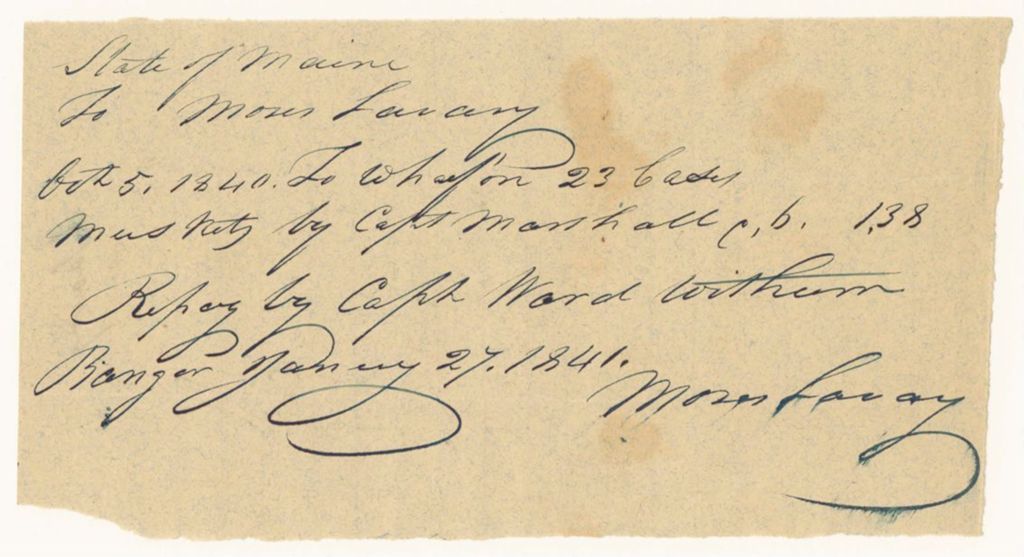 State of Maine
To Moses Lavary
Oct 5. 1840. To Whaf on 23 Cases
Muskets by Capt Marshall 1,38
by Capt Ward Withum
Bangor January 27. 1841.
Moses Lavay